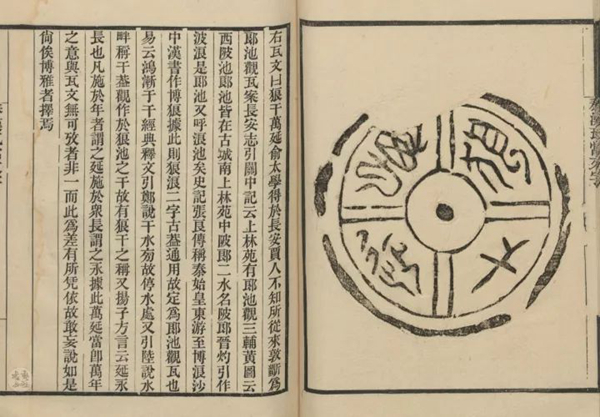 右瓦文曰狼干萬延俞太學得於長安賈人不知所從來敦斷為
郎池觀瓦案長安志引關中記云上林苑有郎池觀三輔黃圖云
西陂池郎池皆在古城南上林苑中陂郎二水名陂郎晉灼引作
波浪是郎池又呼浪池矣史記張良傳稱秦始皇東游至博浪沙
中漢書作博狼據此則狼浪二字古蓋通用故定為郎池觀瓦也
易云鴻漸于干經典釋文引鄭說干水㫄故停水處又引陸說水
畔稱干蓋觀作於狼池之干故有狼干之稱又揚子方言云延永
長也凡施於年者謂之延施於衆長謂之永據此萬延當卽萬年
之意與瓦文無可攷者非一而此為差有所凭依故敢妄說如是
尚俟博雅者擇焉